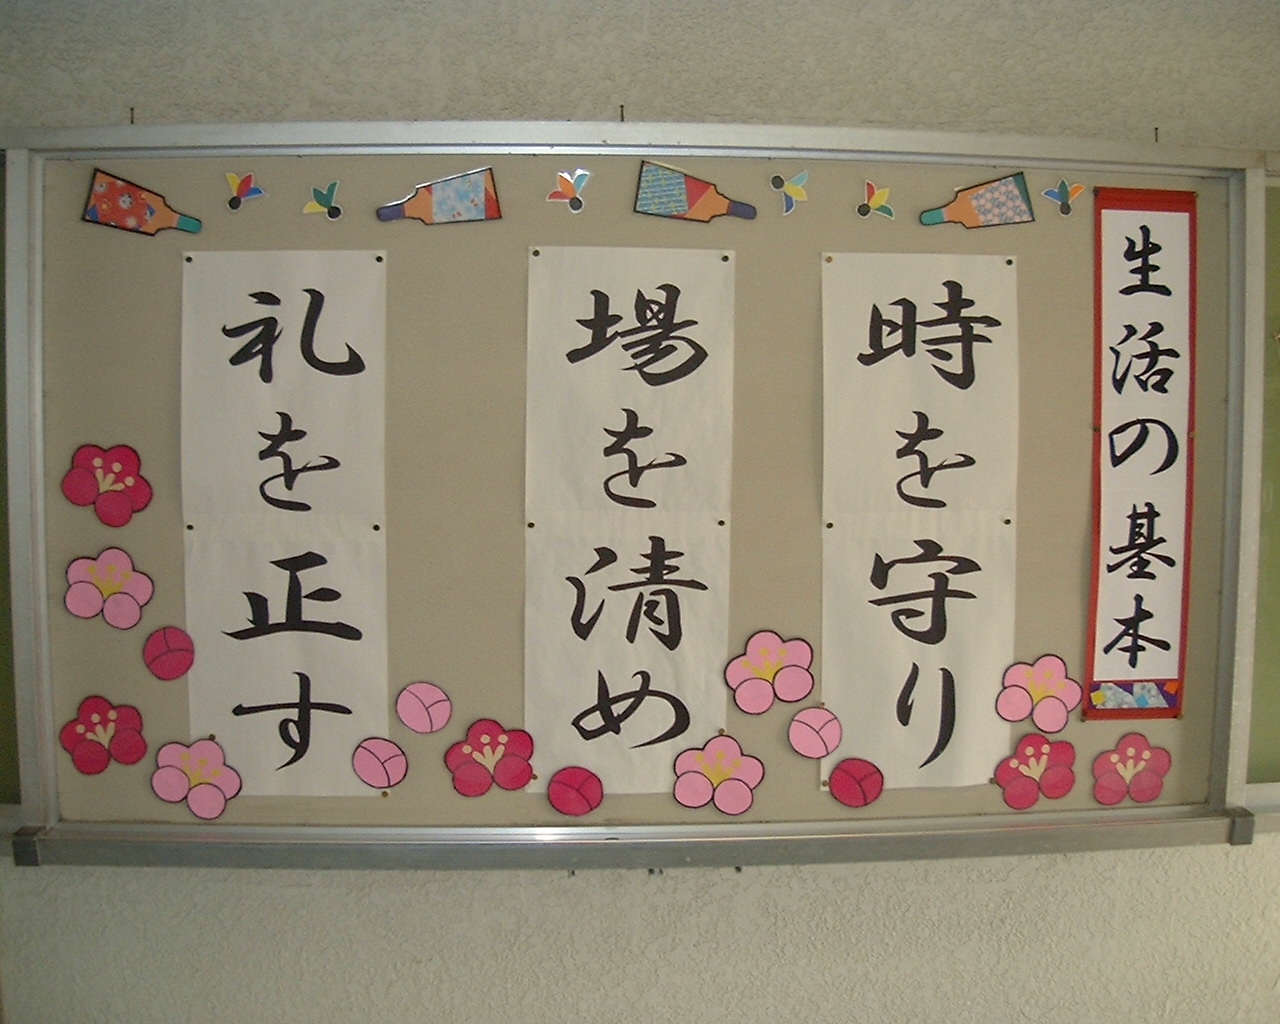 生活の基本
時を守り
場を清め
礼を正す